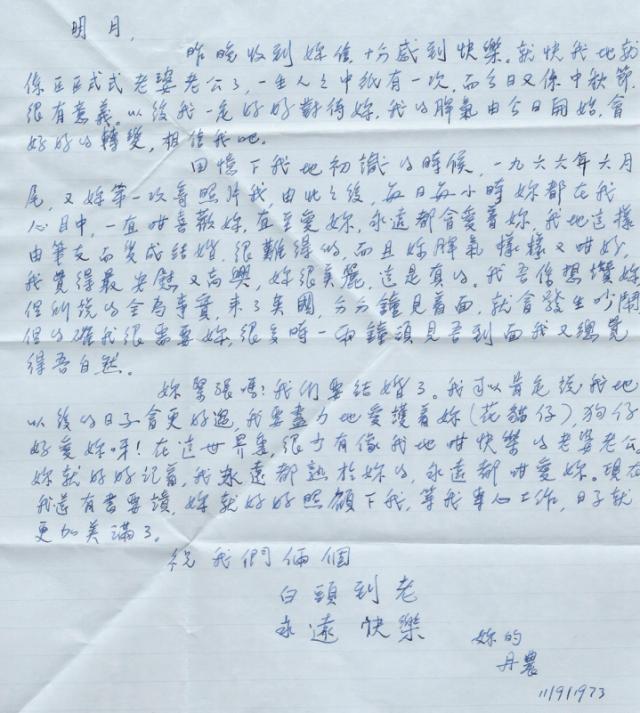 明月,
昨晚收到妳信,十分感到快樂。就快我地就
係正正式式老婆老公了,一生人之中紙有一次,而今日又係中秋節,
很有意義。以後我一定好好對待妳,我的脾氣由今日開始,會
好好的轉變,相信我吧。
回憶下我地初識的時候,一九六六年六月
尾,又妳第一次寄照片我,由此之後,每日每小時妳都在我
心目中,一直咁喜歡妳,直至愛妳,永遠都會愛着妳,我地這樣
由筆友而變成結婚,很難得的,而且妳脾氣樣樣又咁好,
我覺得最安慰又高興,妳很美麗,這是真的。我吾係想讚妳
但所說的全為事實,來了美國,分分鐘見着面,就會發生吵鬧
但的確我很需要妳,很多時一兩鐘頭見吾到面我又總覺
得吾自然。
妳緊張嗎?我們要結婚了。我可以肯定說我地
以後的日子會更好過,我要盡力地愛護着妳(花貓仔),狗仔
好愛妳呀!在這世界裏,很少有像我地咁快樂的老婆老公
妳就好好記着,我永遠都熱於妳的,永遠都咁愛妳。現在
我還有書要讀,妳就好好照顧下我,等我專心工作,日子就
更加美滿了。
祝我們倆個
白頭到老
永遠快樂
妳的
丹農
11/9/1973